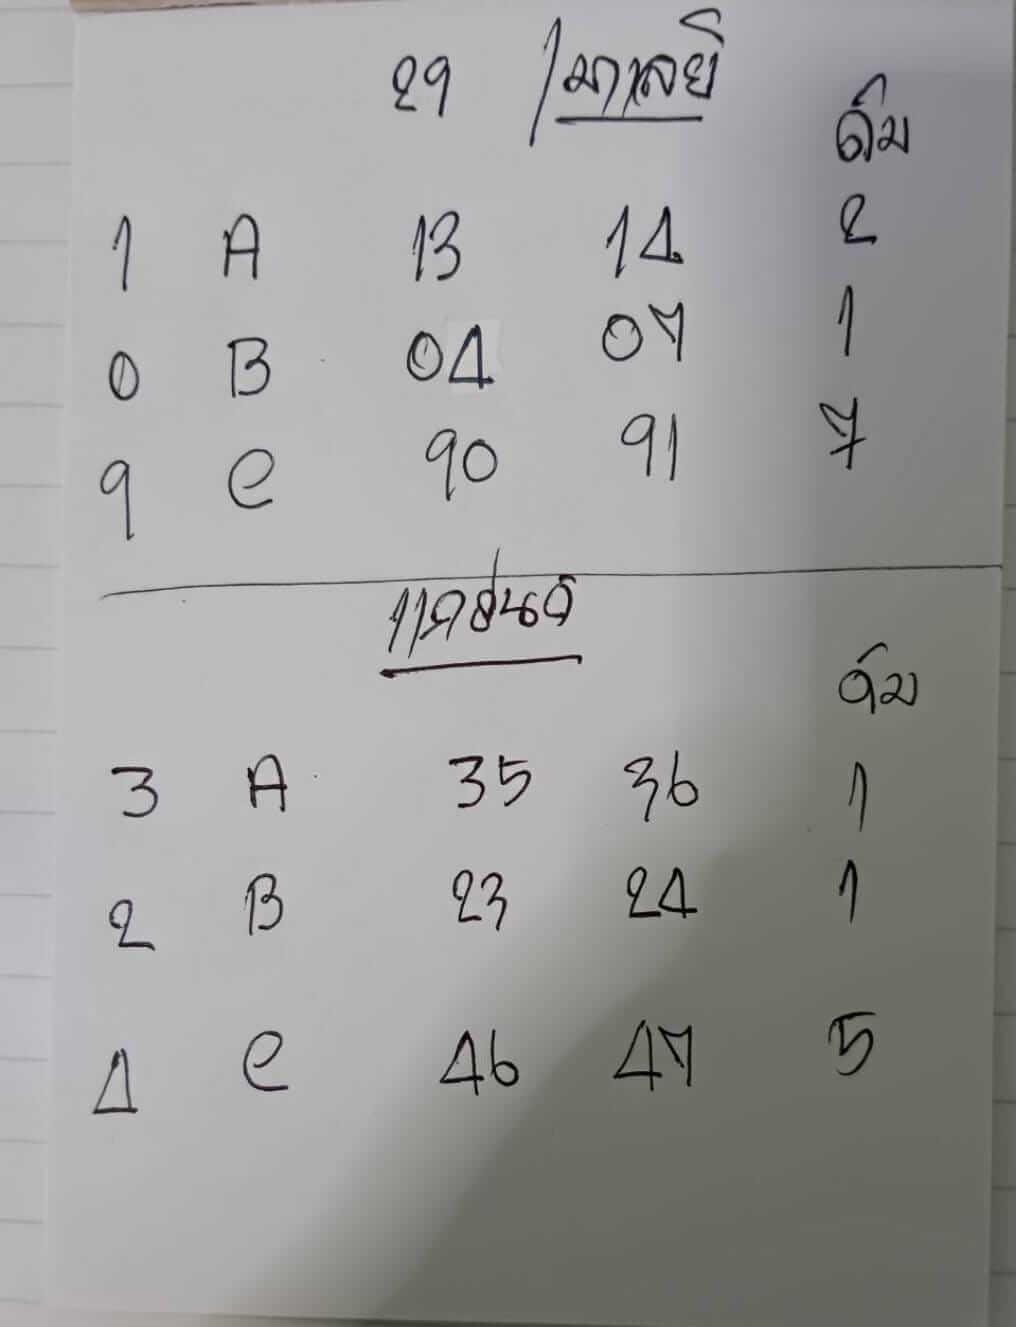 29 / มาเลย์
ดิม
1 A 13 14 2
0 B 04 07 1
9 C 90 91 7
ดิม
3 A 35 36 1
2 B 23 24 1
4 C 46 47 5